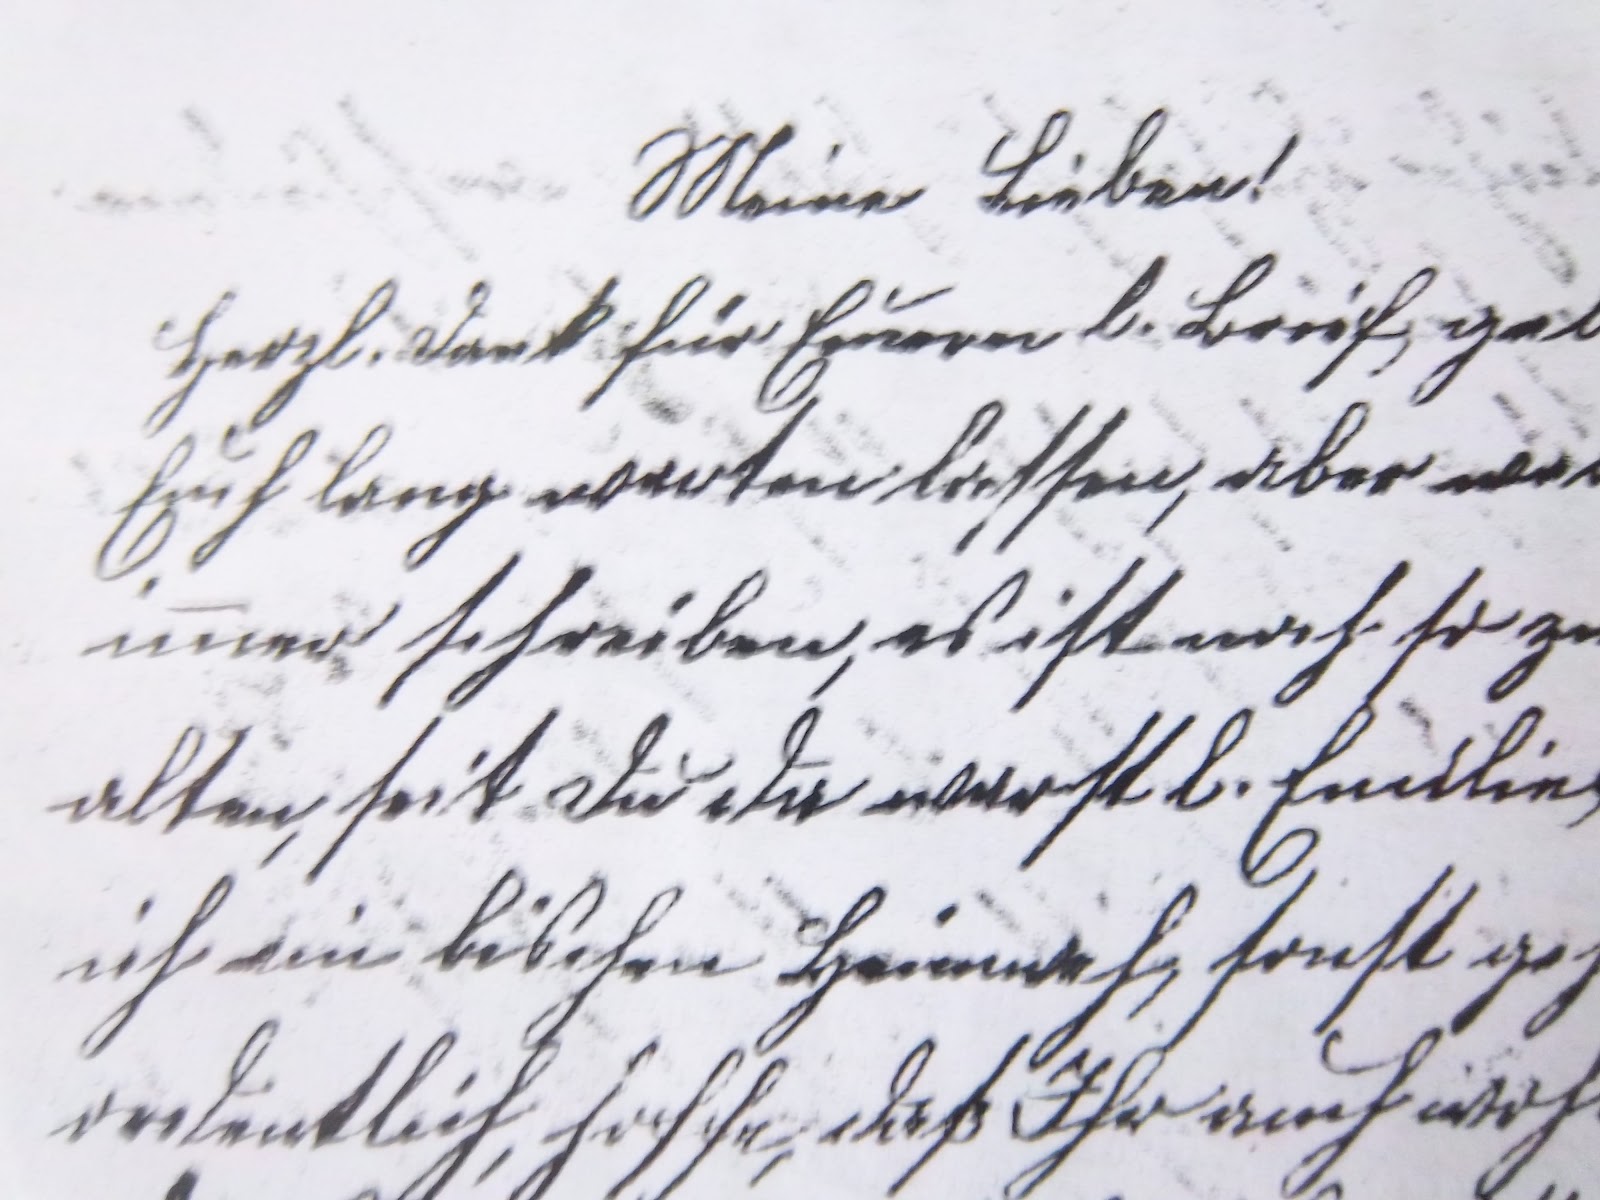 Meine Lieben!
Herzl. Dank für Euern l. Brief,
Euch lang warten lassen, aber
im̅er schreiben, es ist noch so
alten, seit Du da warst l. Emilie,
ich ein bischen Heimweh, sonst
ordentlich, hoffe, daß Ihr auch